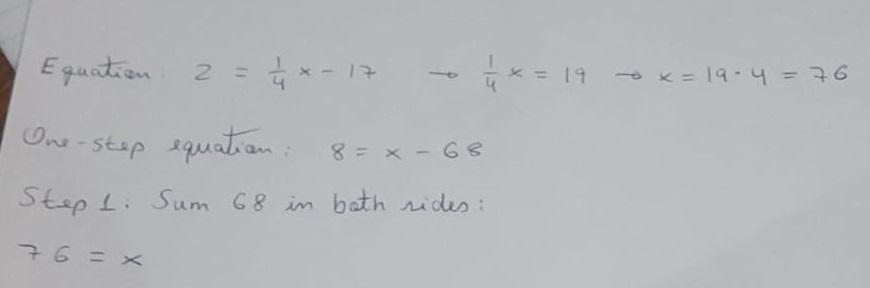 Equation: 2 = 1/4 x - 17 → 1/4 x = 19 → x = 19 · 4 = 76
One-step equation: 8 = x - 68
Step 1: Sum 68 in both sides:
76 = x